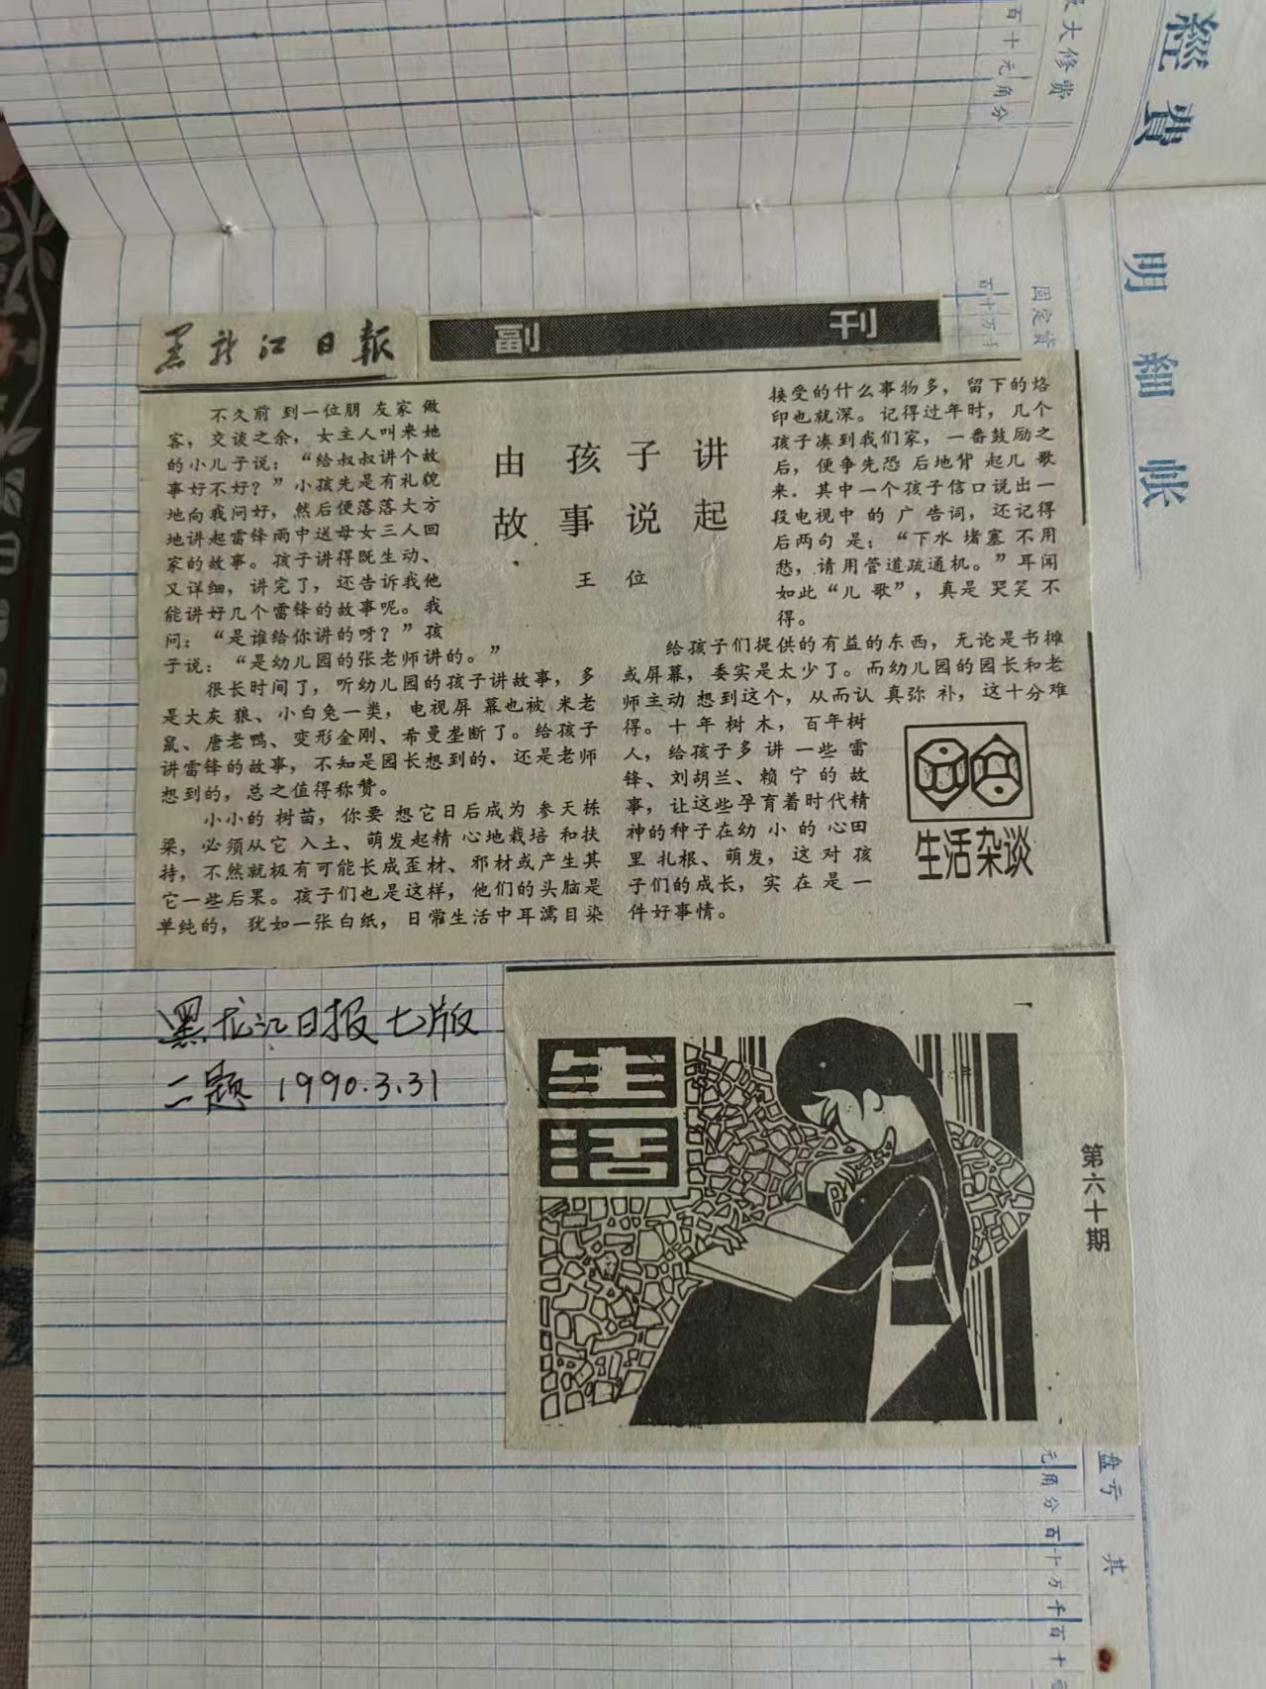 經費
大修费
百十元角分
明細帐
固定資
百十万千
黑龙江日報
副刊
由孩子讲
故事说起
王位
不久前到一位朋友家做
客，交谈之余，女主人叫来她
的小儿子说：“给叔叔讲个故
事好不好？”小孩先是有礼貌
地向我问好，然后便落落大方
地讲起雷锋雨中送母女三人回
家的故事。孩子讲得既生动、
又详细，讲完了，还告诉我他
能讲好几个雷锋的故事呢。我
问：“是谁给你讲的呀？”孩
子说：“是幼儿园的张老师讲的。”
很长时间了，听幼儿园的孩子讲故事，多
是大灰狼、小白兔一类，电视屏幕也被米老
鼠、唐老鸭、变形金刚、希曼垄断了。给孩子
讲雷锋的故事，不知是园长想到的，还是老师
想到的，总之值得称赞。
小小的树苗，你要想它日后成为参天栋
梁，必须从它入土、萌发起精心地栽培和扶
持，不然就极有可能长成歪材、邪材或产生其
它一些后果。孩子们也是这样，他们的头脑是
单纯的，犹如一张白纸，日常生活中耳濡目染
接受的什么事物多，留下的烙
印也就深。记得过年时，几个
孩子凑到我们家，一番鼓励之
后，便争先恐后地背起儿歌
来．其中一个孩子信口说出一
段电视中的广告词，还记得
后两句是：“下水堵塞不用
愁，请用管道疏通机。”耳闻
如此“儿歌”，真是哭笑不
得。
给孩子们提供的有益的东西，无论是书摊
或屏幕，委实是太少了。而幼儿园的园长和老
师主动想到这个，从而认真弥补，这十分难
得。十年树木，百年树
人，给孩子多讲一些雷
锋、刘胡兰、赖宁的故
事，让这些孕育着时代精
神的种子在幼小的心田
里扎根、萌发，这对孩
子们的成长，实在是一
件好事情。
生活杂谈
黑龙江日报七版
二题 1990.3.31
生活
第六十期
盘亏
元角分
百十万千百十元
其